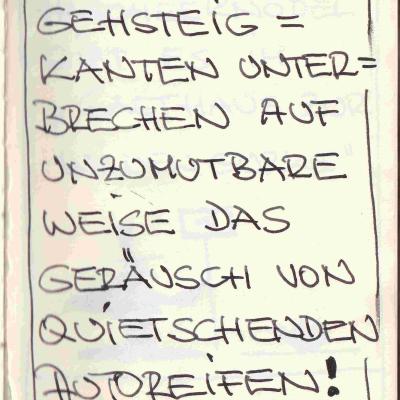 GEHSTEIG =
KANTEN UNTER=
BRECHEN AUF
UNZUMUTBARE
WEISE DAS
GERÄUSCH VON
QUIETSCHENDEN
AUTOREIFEN!